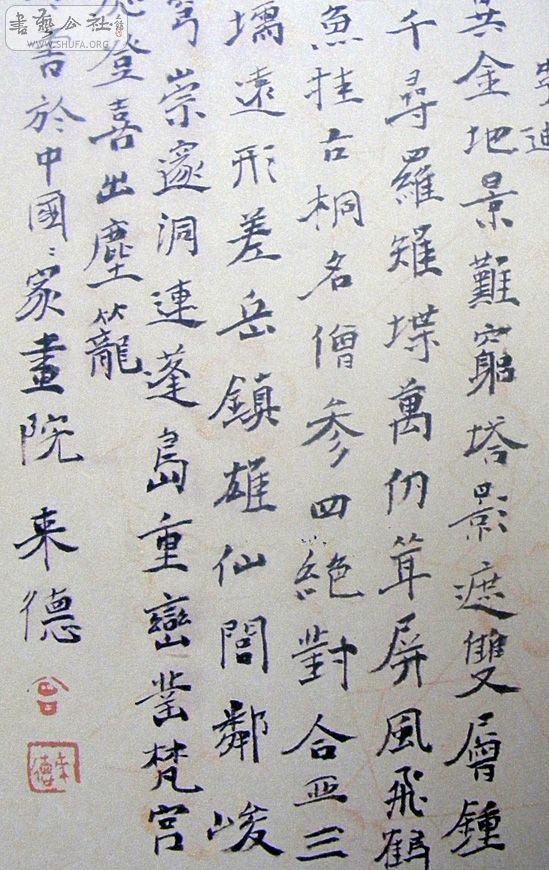 書藝公社
WWW.SHUFA.ORG
迪
金地景難窮塔影遮雙層鍾
千尋羅雉堞萬仞茸屏風飛鶴
魚挂古桐名僧參四絕對合亞三
壖遠形差岳鎮雄仙閭鄰峻
崇邃洞連蓬島重巒凿梵宫
登喜出塵籠
書於中國〻家畫院 来德
来德